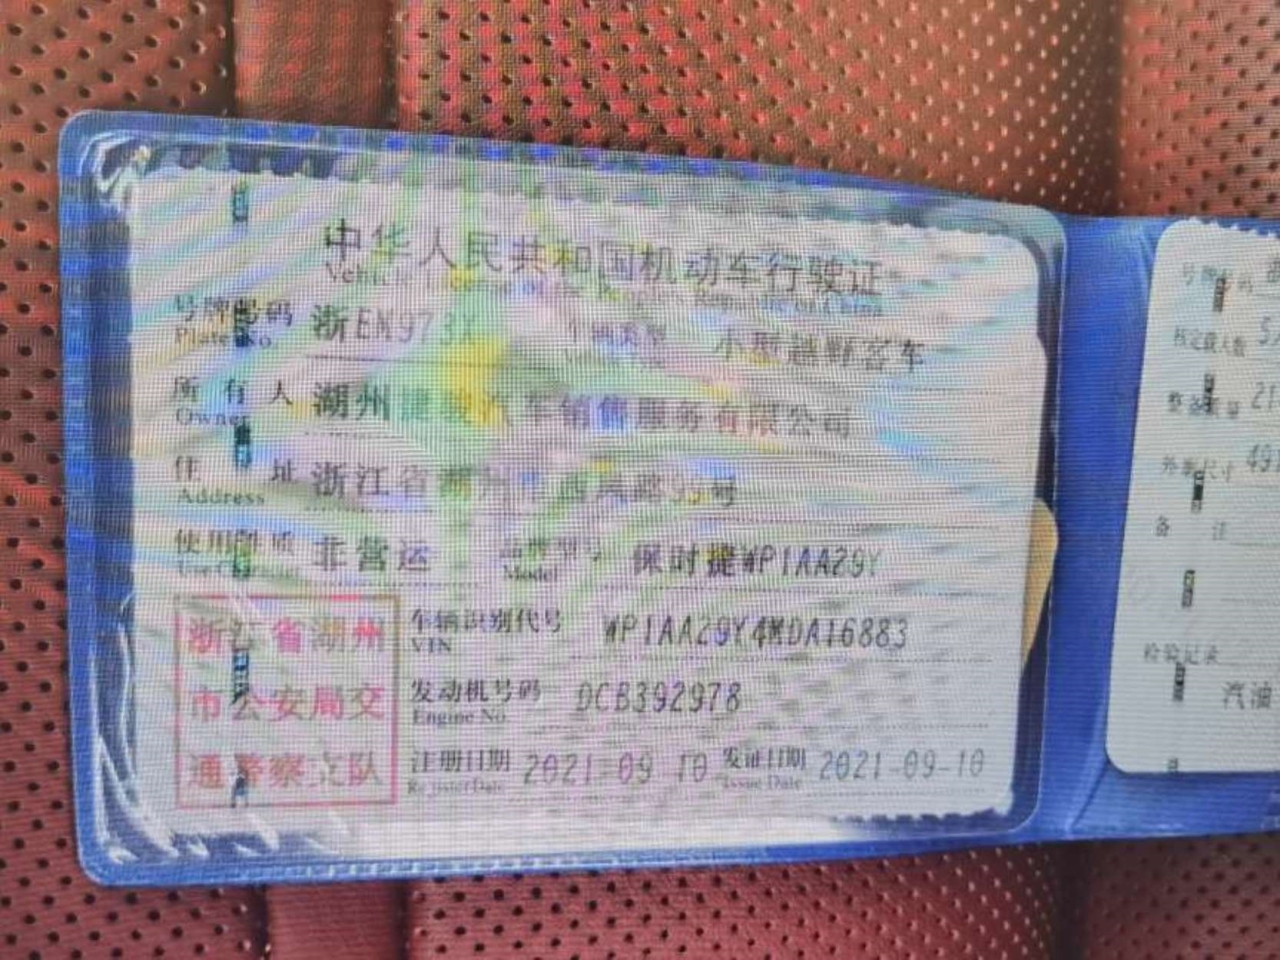 中华人民共和国机动车行驶证
Vehicle License of the People's Republic of China
号牌号码 浙EN973X 车辆类型 小型越野客车
Plate No.
所有人 湖州 汽车销售服务有限公司
Owner
住址 浙江省湖州市西凤路99号
Address
使用性质 非营运 品牌型号 保时捷WP1AA29Y
Model
浙江省湖州
市公安局交
通警察支队
车辆识别代号 WP1AA29Y4MDA16883
VIN
发动机号码 DCB392978
Engine No.
注册日期 2021-09-10 发证日期 2021-09-10
Register Date Issue Date
号牌号码
核定载人数
整备质量
外廓尺寸
备注
检验记录
汽油